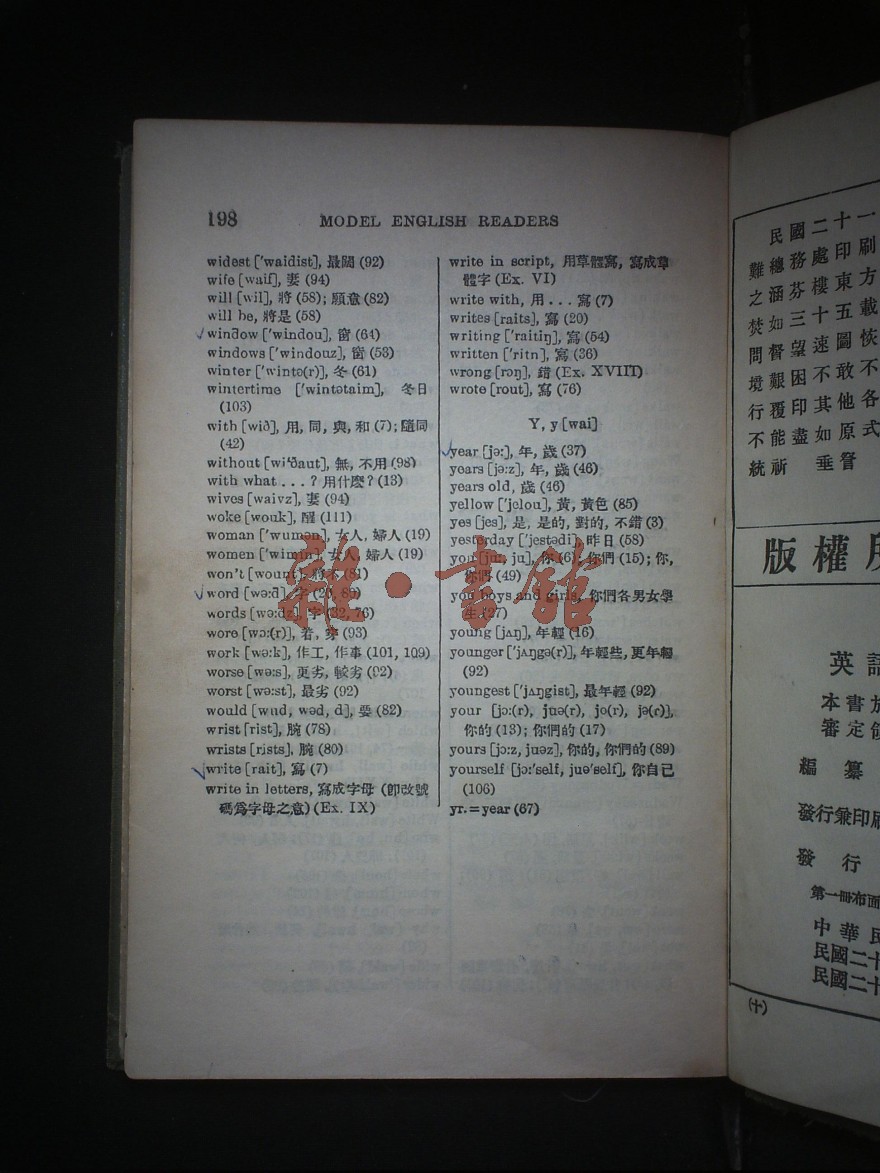 198 MODEL ENGLISH READERS
widest ['waidist], 最闊 (92)
wife [waif], 妻 (94)
will [wil], 將 (58); 願意 (82)
will be, 將是 (58)
window ['windou], 窗 (64)
windows ['windouz], 窗 (53)
winter ['wintə(r)], 冬 (61)
wintertime ['wintətaim], 冬日
(103)
with [wið], 用, 同, 與, 和 (7); 隨同
(42)
without [wi'ðaut], 無, 不用 (98)
with what . . . ? 用什麼? (13)
wives [waivz], 妻 (94)
woke [wouk], 醒 (111)
woman ['wumən], 女人, 婦人 (19)
women ['wimin], 女人, 婦人 (19)
won't [wount], 將不 (81)
word [wə:d], 字 (20, 89)
words [wə:dz], 字 (32, 76)
wore [wɔ:(r)], 着, 穿 (93)
work [wə:k], 作工, 作事 (101, 109)
worse [wə:s], 更劣, 較劣 (92)
worst [wə:st], 最劣 (92)
would [wud, wəd, d], 要 (82)
wrist [rist], 腕 (78)
wrists [rists], 腕 (80)
write [rait], 寫 (7)
write in letters, 寫成字母 (卽改號
碼爲字母之意) (Ex. IX)
write in script, 用草體寫, 寫成草
體字 (Ex. VI)
write with, 用 . . . 寫 (7)
writes [raits], 寫 (20)
writing ['raitiŋ], 寫 (54)
written ['ritn], 寫 (36)
wrong [rɔŋ], 錯 (Ex. XVIII)
wrote [rout], 寫 (76)
Y, y [wai]
year [jə:], 年, 歲 (37)
years [jə:z], 年, 歲 (46)
years old, 歲 (46)
yellow ['jelou], 黃, 黃色 (85)
yes [jes], 是, 是的, 對的, 不錯 (3)
yesterday ['jestədi], 昨日 (58)
you [ju:, ju], 你 (6); 你們 (15); 你,
你們 (49)
you boys and girls, 你們各男女學
生 (37)
young [jʌŋ], 年輕 (16)
younger ['jʌŋgə(r)], 年輕些, 更年輕
(92)
youngest ['jʌŋgist], 最年輕 (92)
your [jɔ:(r), juə(r), jo(r), jə(r)],
你的 (13); 你們的 (17)
yours [jɔ:z, juəz], 你的, 你們的 (89)
yourself [jɔ:'self, juə'self], 你自己
(106)
yr. = year (67)
雜·書館
民國二十一
難總務處印刷
之涵芬樓東方
焚如三十五載
問督望速圖恢
境艱困不敢不
行覆印其他各
不能盡如原式
統祈 垂詧
版權所
英語
本書於
審定領
編纂
發行兼印刷
發行
第一冊布面
中華民
民國二十
民國二十
(十)